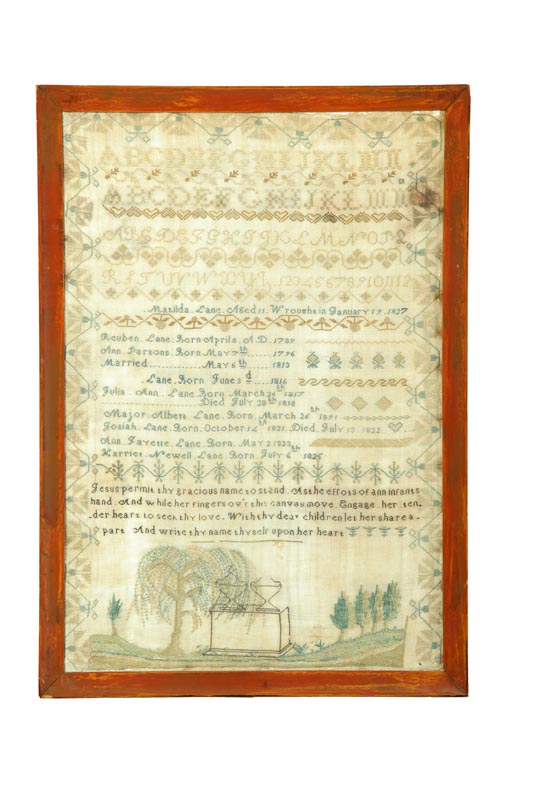 ABCDEFGHIJKLM
ABCDEFGHIJKLM
ABCDEFGHIJKLMNOPQ
RSTUVWXYZ 123456789101112
Matilda Lane Aged 11. Wrought in January 19. 1827
Reuben Lane Born April 8. A.D. 1789
Ann Parsons Born May 7th 1796
Married May 6th 1813
Lane Born June 3d 1816
Julia Ann Lane Born March 24th 1817
Died July 28th 1818
Major Albert Lane Born March 26th
Josiah Lane Born October 14th 1821. Died July 13. 1822
Ann Fayette Lane Born May 2 1823
Harriet Newell Lane Born July 6th 1825
Jesus permit thy gracious name to stand. As the efforts of ann infants
hand. And while her fingers ov'r this canvas move. Engage her ten
der heart to seek thy love. With thy dear children let her share a
part And write thy name thyself upon her heart